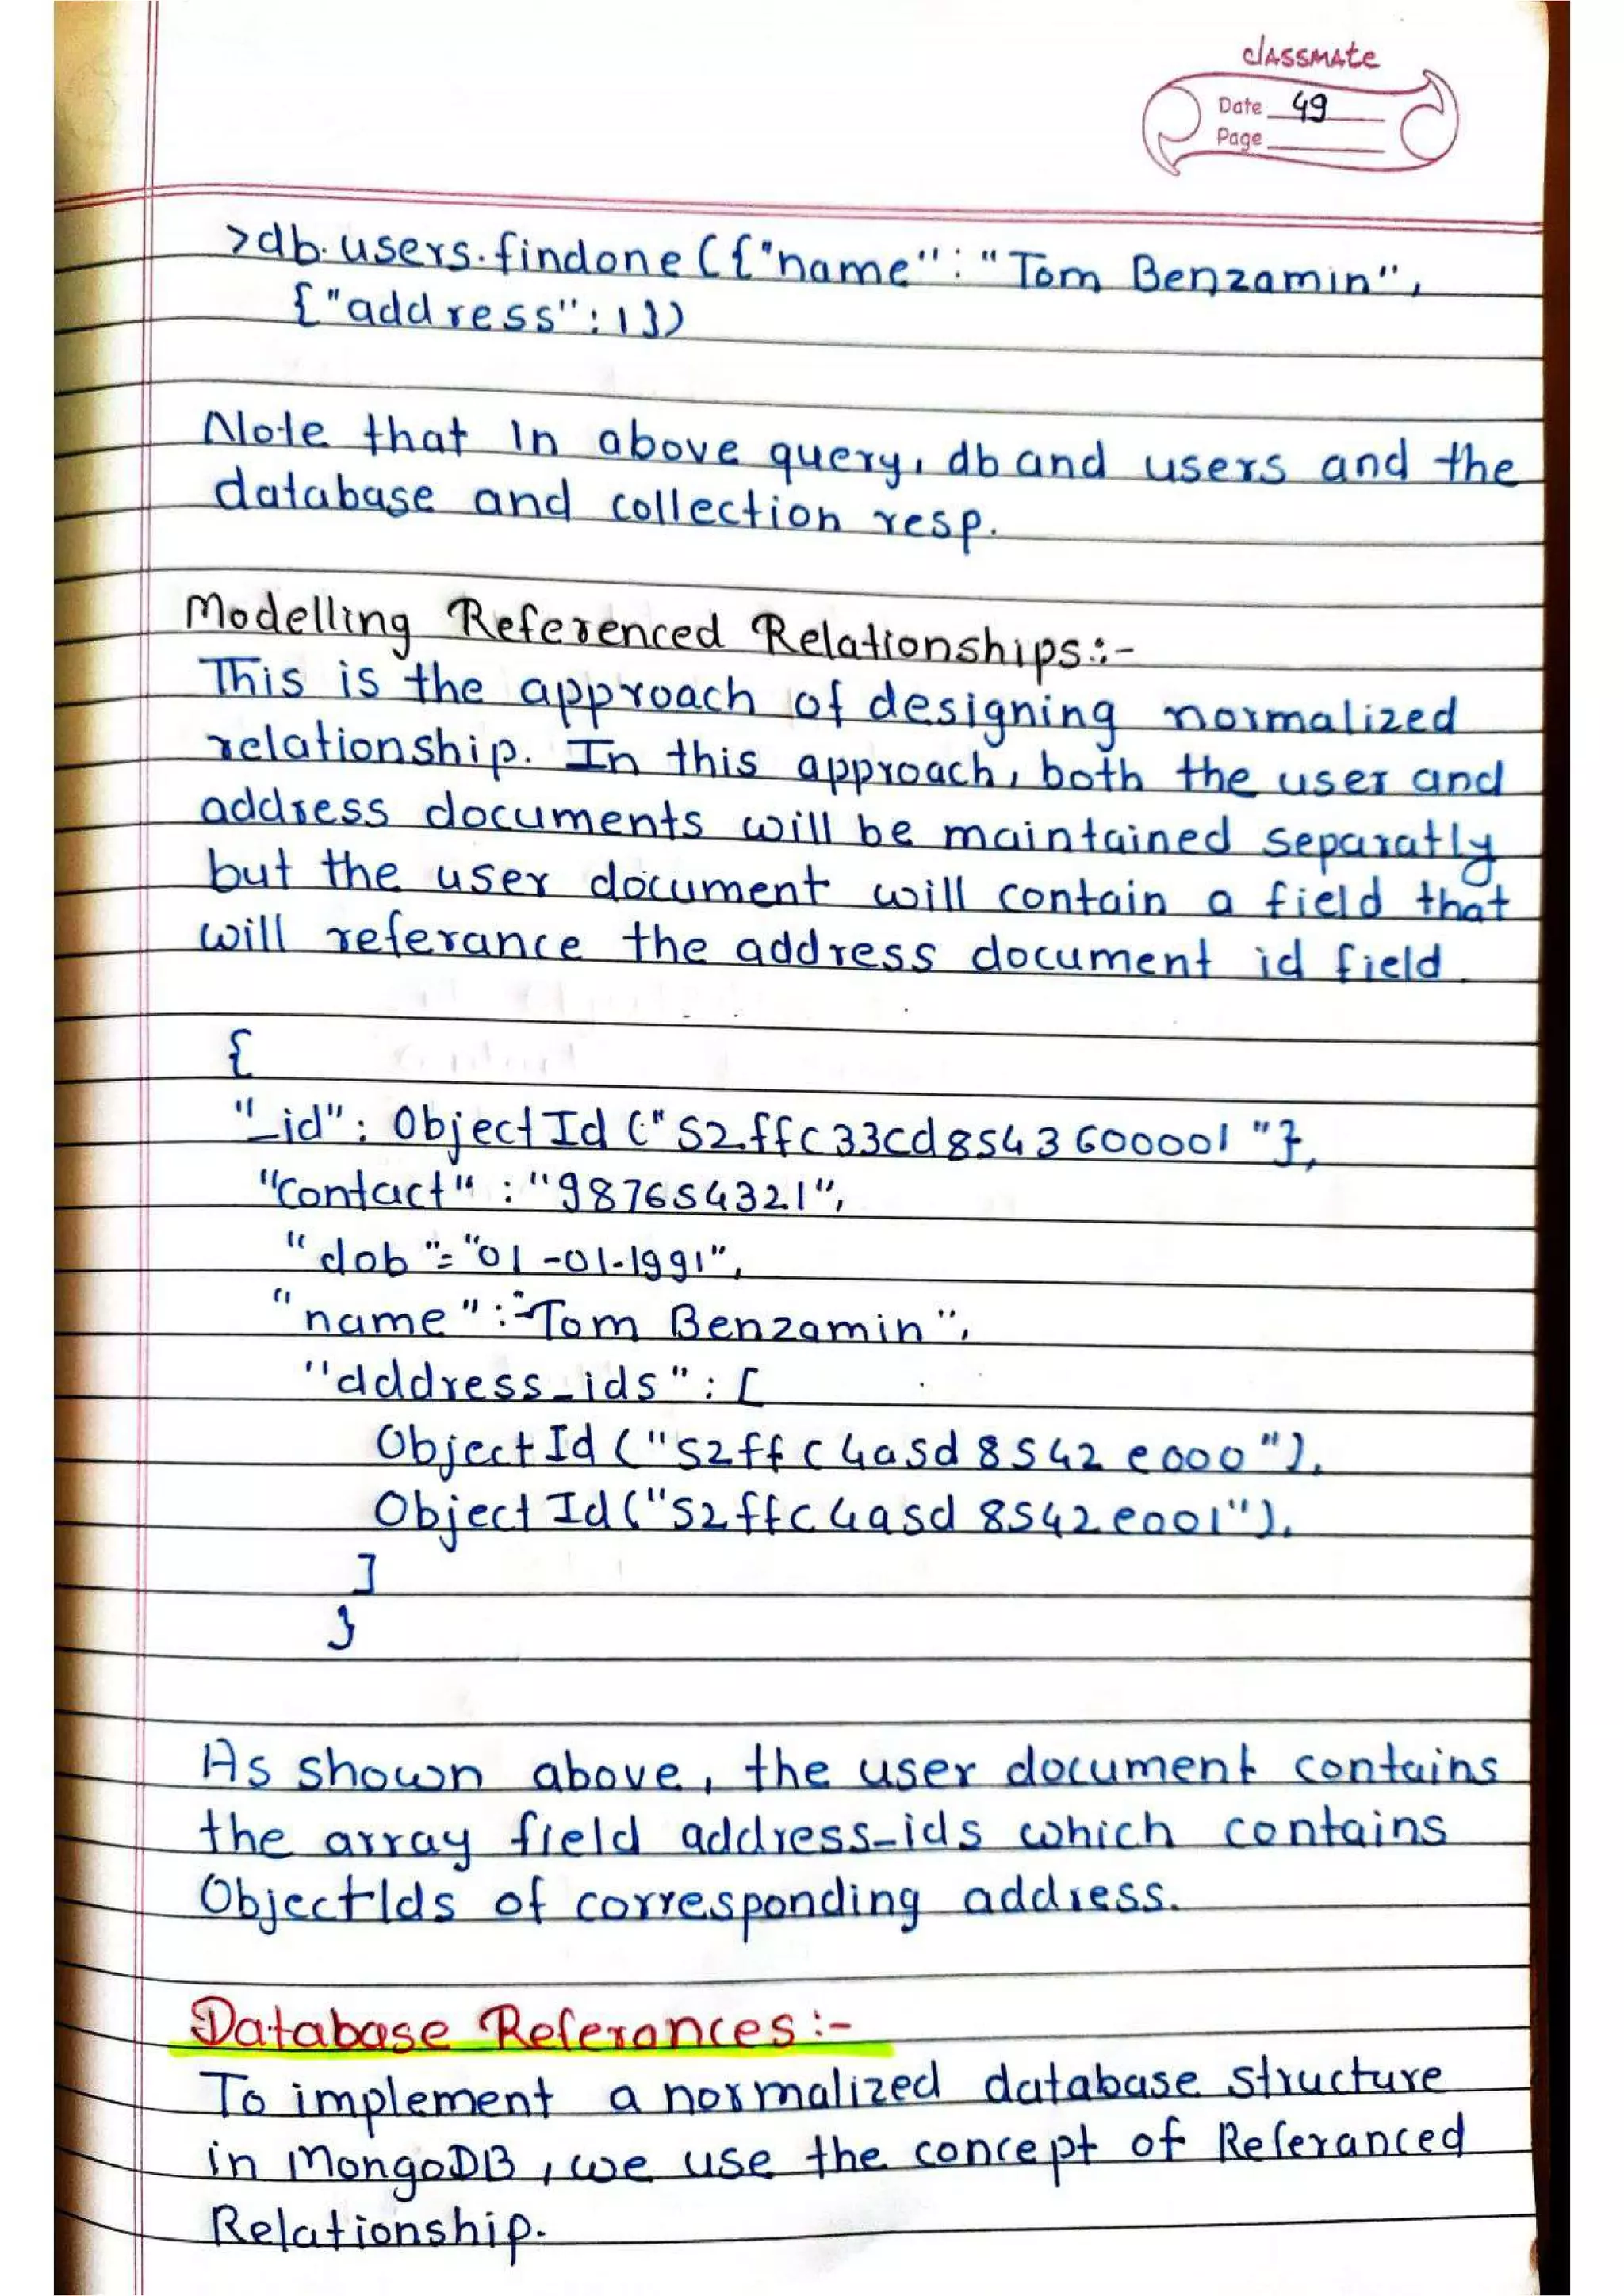 classmate
Date 49
Page
>db.users.findone({"name":"Tom Benzamin",
{"address":1})
Note that In above query, db and users and the
database and collection resp.
Modelling Referenced Relationships:-
This is the approach of designing normalized
relationship. In this approach, both the user and
address documents will be maintained separatly
but the user document will contain a field that
will referance the address document id field
{
"_id": ObjectId ("52ffc33cd8543600001"},
"contact" : "987654321",
"dob"= "01-01-1991",
"name" : "Tom Benzamin",
"address_ids" : [
ObjectId ("52ffc4a5d8542e000"),
ObjectId("52ffc4a5d8542e001"),
]
}
As shown above, the user document contains
the array field address-ids which contains
ObjectIds of corresponding address.
Database Referances:-
To implement a normalized database structure
in MongoDB, we use the concept of Referanced
Relationship.